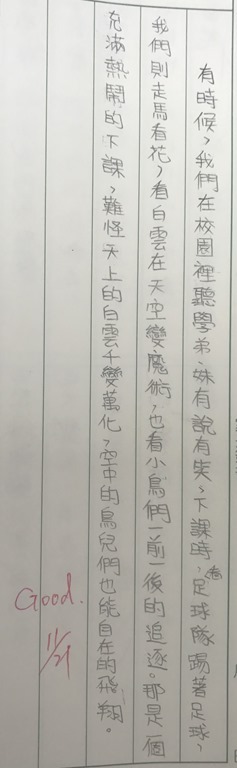 有時候，我們在校園裡聽學弟、妹有說有笑、下課時，看足球隊踢著足球，
我們則走馬看花，看白雲在天空變魔術，也看小鳥們一前一後的追逐。那是一個
充滿熱鬧的下課，難怪天上的白雲千變萬化，空中的鳥兒們也能自在的飛翔。
Good.
11/21